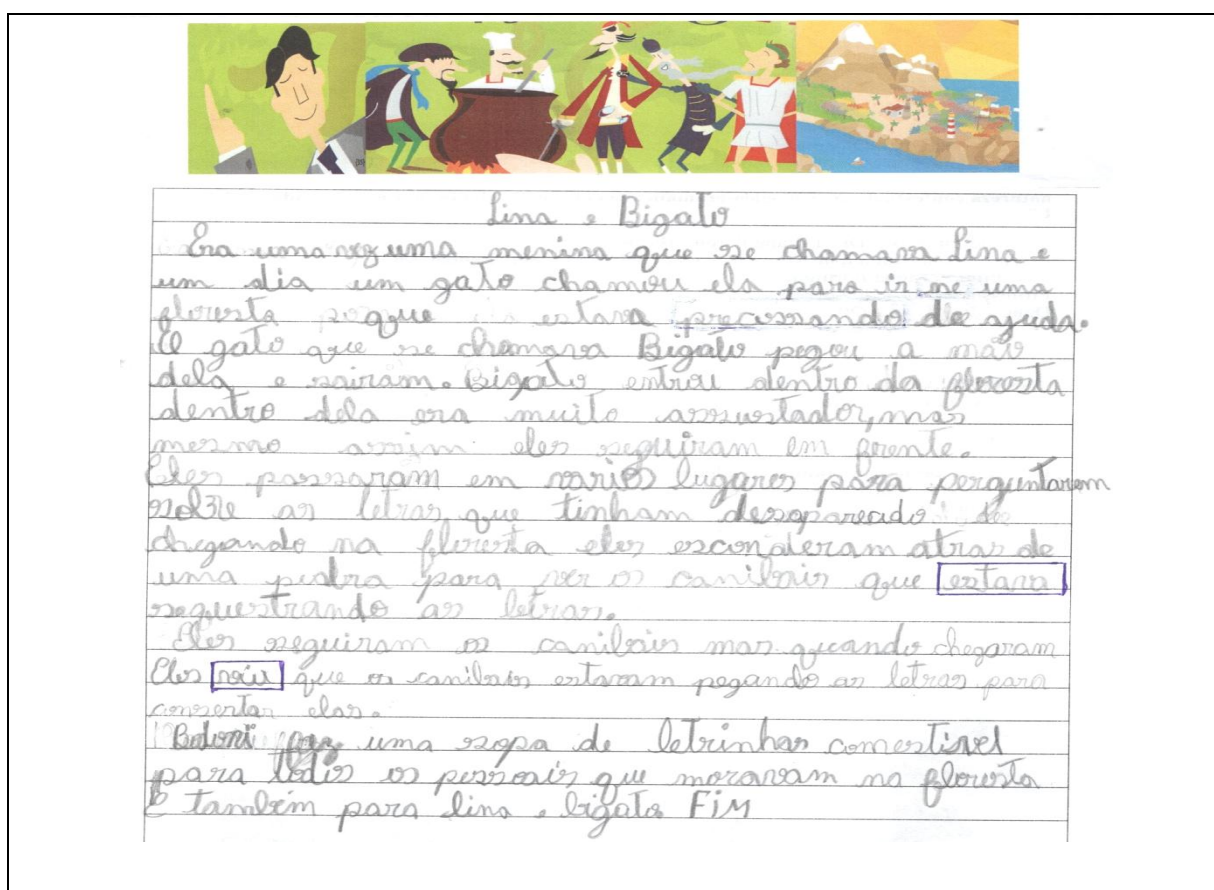 Lina e Bigato
Era uma vez uma menina que se chamava Lina e
um dia um gato chamou ela para ir ne uma
floresta poque estava precossando de ajuda.
O gato que se chamava Bigato pegou a mão
dela e sairam. Bigato entrou dentro da floresta
dentro dela era muito assustador, mas
mesmo assim eles seguiram em frente.
Eles passaram em varios lugares para perguntarem
sobre as letras que tinham desaparecido
chegando na floresta eles esconderam atras de
uma pedra para ver os canibais que estava
sequestrando as letras.
Eles seguiram os canibais mas quando chegaram
Eles viu que os canibais estavam pegando as letras para
consertar elas.
uma sopa de letrinhas comestivel
para todos os pessoais que moravam na floresta
E também para lina e bigato FiM